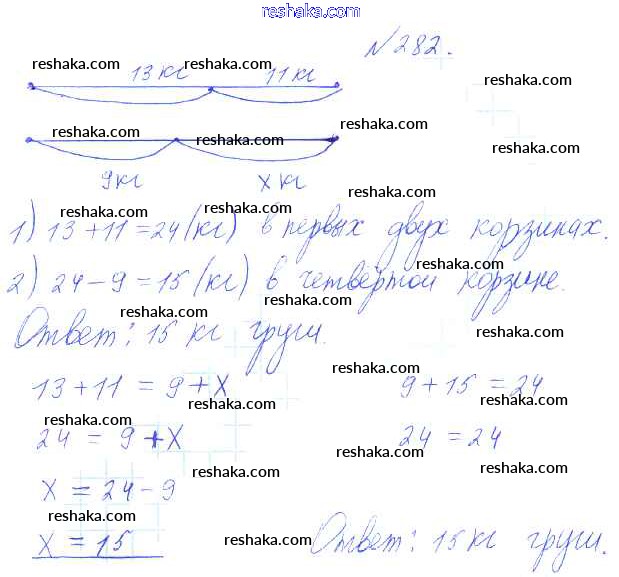 reshaka.com
N 282.
reshaka.com reshaka.com reshaka.com
13 кг 11 кг
reshaka.com reshaka.com reshaka.com reshaka.com
9 кг x кг
reshaka.com reshaka.com reshaka.com
1) 13 + 11 = 24 (кг) в первых двух корзинах.
reshaka.com reshaka.com reshaka.com
2) 24 - 9 = 15 (кг) в четвёртой корзине.
reshaka.com reshaka.com
Ответ: 15 кг груш.
reshaka.com reshaka.com
13 + 11 = 9 + x 9 + 15 = 24
reshaka.com reshaka.com reshaka.com
24 = 9 + x 24 = 24
reshaka.com reshaka.com reshaka.com
x = 24 - 9
reshaka.com reshaka.com
x = 15 Ответ: 15 кг груш.
reshaka.com reshaka.com